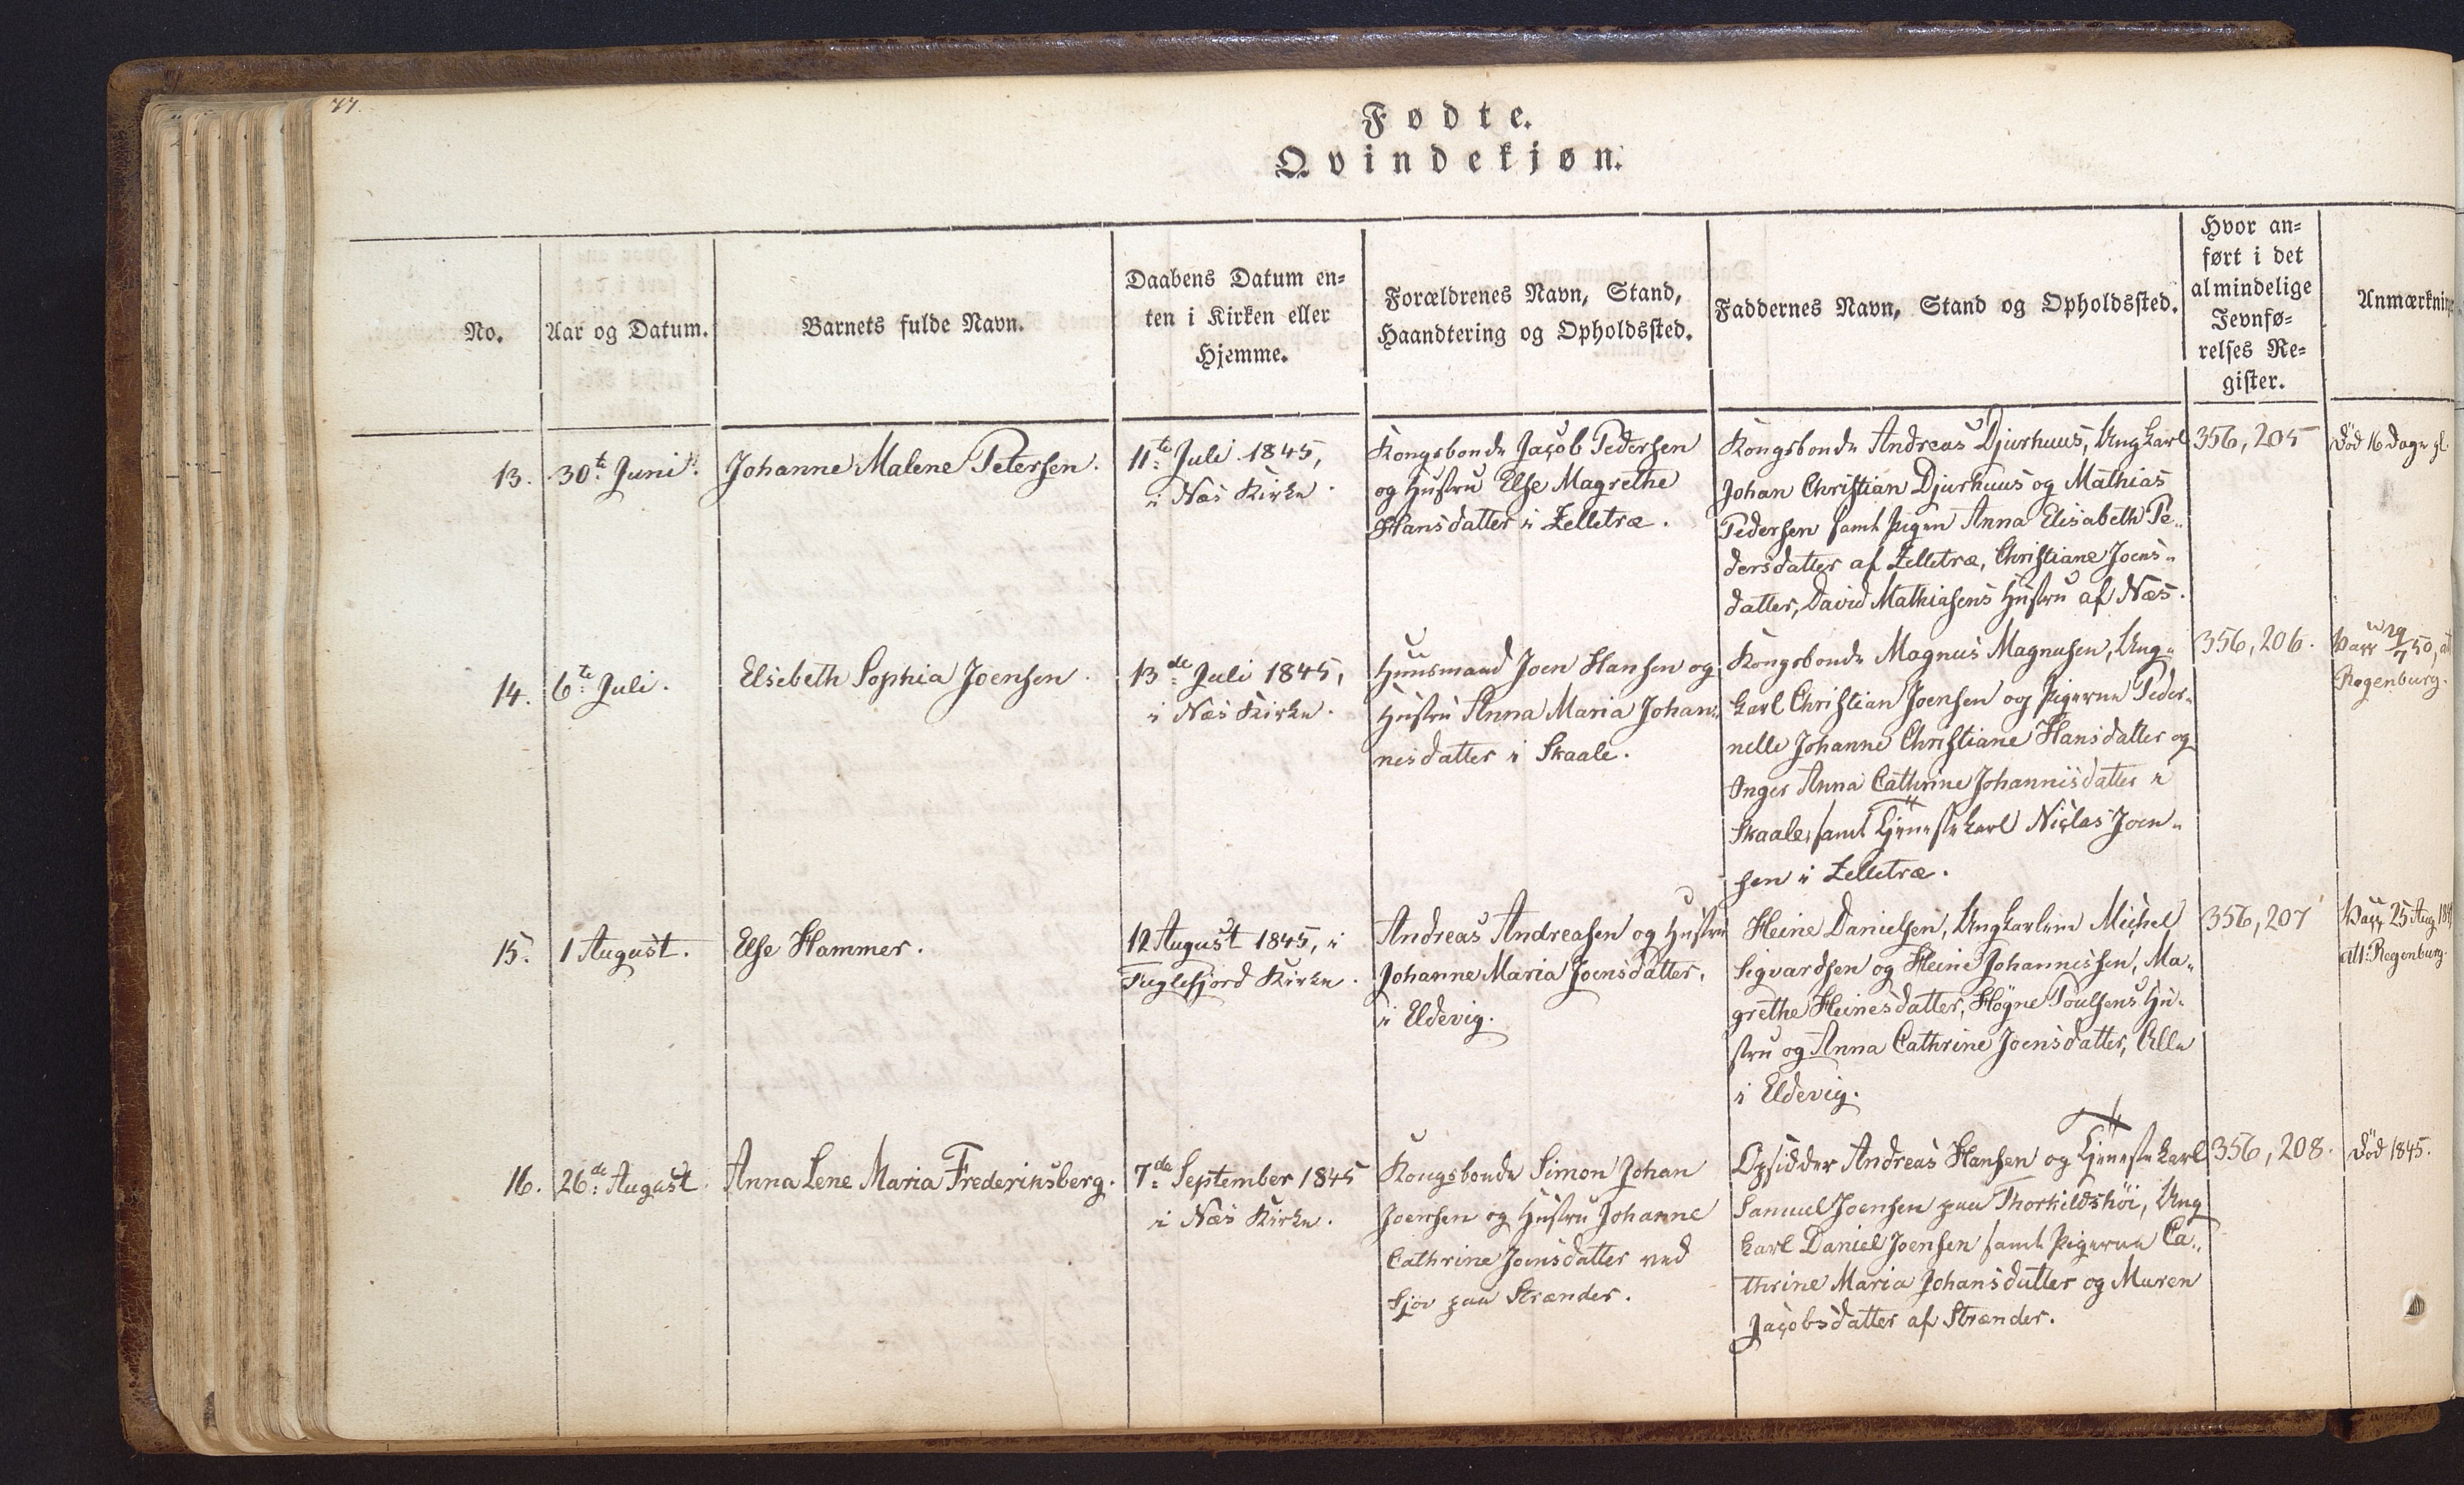 77.
Fødte.
Qvindekjøn.
No.
Aar og Datum.
Barnets fulde Navn.
Daabens Datum en=
ten i Kirken eller
Hjemme.
Forældrenes Navn, Stand,
Haandtering og Opholdssted.
Faddernes Navn, Stand og Opholdssted.
Hvor an=
ført i det
almindelige
Jevnfø=
relses Re=
gister.
Anmærknin
13.
30te Juni.
Johanne Malene Petersen.
11te Juli 1845,
i Næs Kirke.
Kongsbonde Jacob Pedersen
og Hustru Else Magrethe
Hansdatter i Zelletræ.
Kongsbonde Andreas Djurhuus, Ungkarl
Johan Christian Djurhuus og Mathias
Pedersen samt Pigen Anna Elisabeth Pe-
dersdatter af Zelletræ, Christiane Joens-
datter, David Mathiasens Hustru af Næs.
356, 205
Död 16 Dage gl.
14.
6te Juli.
Elsebeth Sophia Joensen.
13de Juli 1845,
i Næs Kirke.
Huusmand Joen Hansen og
Hustru Anna Maria Johan-
nesdatter i Skaale.
Kongsbonde Magnus Magnusen, Ung-
karl Christian Joensen og Pigerne Peder-
nelle Johanne Christiane Hansdatter og
Inger Anna Cathrine Johannisdatter i
Skaale, samt Tjenestekarl Niclas Joen-
sen i Zelletræ.
356, 206.
Vacc 29/7 50, att
Regenburg.
15.
1 August.
Else Hammer.
12 August 1845, i
Fuglefjord Kirke.
Andreas Andreasen og Hustru
Johanne Maria Joensdatter,
i Eldevig.
Heine Danielsen, Ungkarlene Michel
Sigvardsen og Heine Johannessen, Ma-
grethe Heinesdatter, Högne Poulsens Hu-
stru og Anna Cathrine Joensdatter, Alle
i Eldevig.
356, 207
Vacc 25 Aug
att: Regenburg.
16.
26de August.
Anna Lene Maria Frederiksberg.
7de September 1845
i Næs Kirke.
Kongsbonde Simon Johan
Joensen og Hustru Johanne
Cathrine Joensdatter ved
Sjov paa Strænder.
Opsidder Andreas Hansen og Tjenestekarl
Samuel Joensen paa Thorkildshöi, Ung
karl Daniel Joensen samt Pigerne Ca-
thrine Maria Johansdatter og Maren
Jacobsdatter af Strænder.
356, 208.
Död 1845.